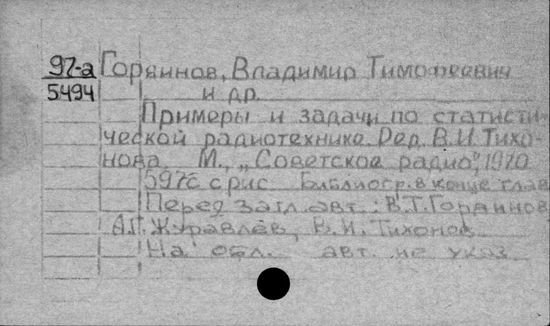 97-а Горяинов, Владимир Тимофеевич
5494 и др.
Примеры и задачи по статисти-
ческой радиотехнике. Ред. В.И. Тихо-
нова М., „Советское радио", 1970
597с с рис. Библиогр. в конце глав
Перед загл. авт.: В.Т. Горяинов
А.Г. Журавлев, В.И. Тихонов
На обл. авт. не указ.